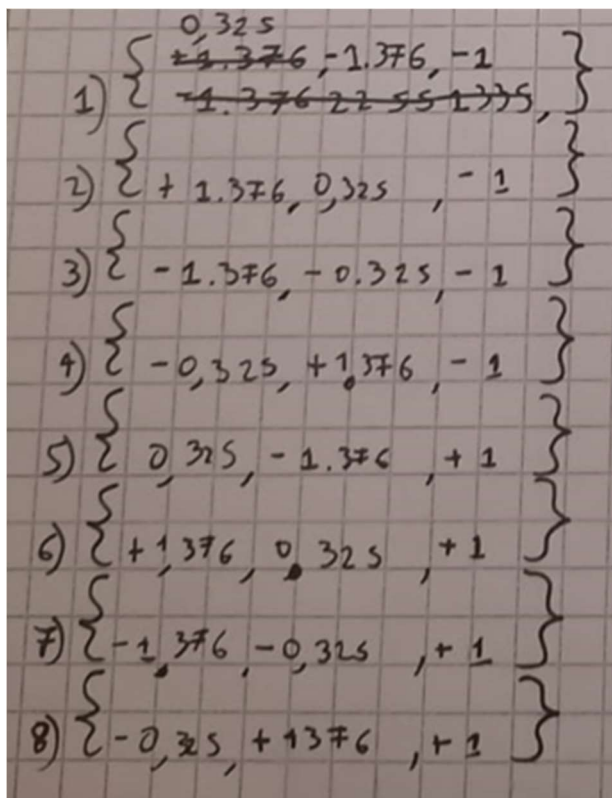 0,325
+1.376, -1.376, -1
1) { -1.376 22 55 1335, }
2) { +1.376, 0,325, -1 }
3) { -1.376, -0.325, -1 }
4) { -0,325, +1,376, -1 }
5) { 0,325, -1.376, +1 }
6) { +1,376, 0,325, +1 }
7) { -1,376, -0,325, +1 }
8) { -0,325, +1376, +1 }